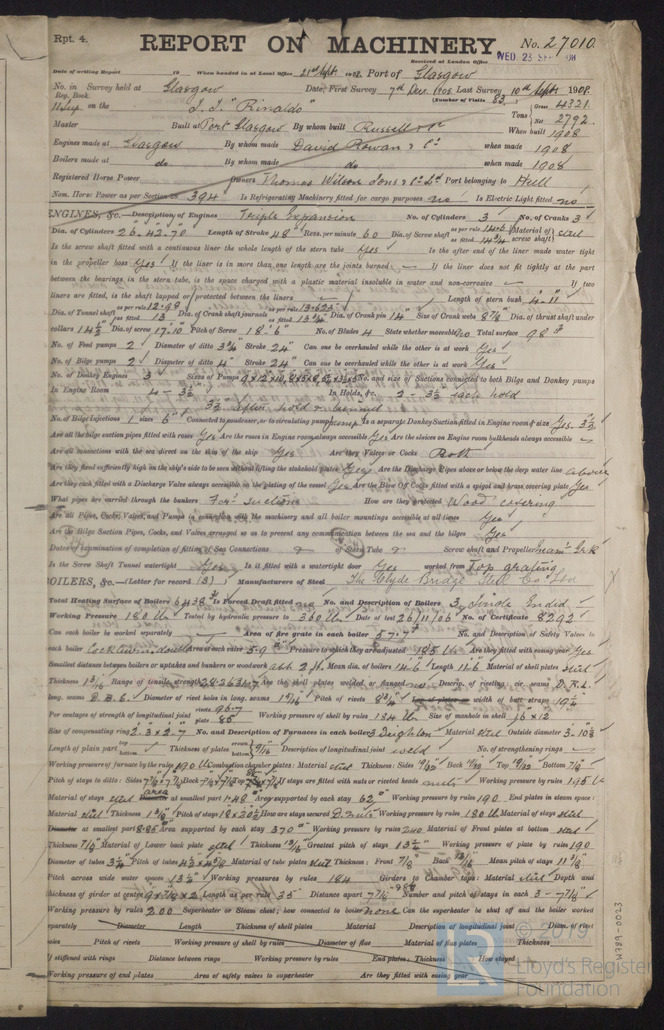 Rpt. 4.
REPORT ON MACHINERY. No. 27010.
Received at London Office WED. 23 SEP
Date of writing Report 19 When handed in at Local Office 21st Sept 1908. Port of Glasgow
No. in Reg. Book. Survey held at Glasgow Date, First Survey 7th Dec. Last Survey 10th Sept 1908.
(Number of Visits 63)
on the S.S. "Rinaldo" Tons Gross 4321 Net 2792
Master Built at Port Glasgow By whom built Russell & Co When built 1908
Engines made at Glasgow By whom made David Rowan & Co when made 1908
Boilers made at do By whom made do when made 1908
Registered Horse Power Owners Thomas Wilson Sons & Co Ld Port belonging to Hull
Nom. Horse Power as per Section 394 Is Refrigerating Machinery fitted for cargo purposes no Is Electric Light fitted no
ENGINES, &c.—Description of Engines Triple Expansion No. of Cylinders 3 No. of Cranks 3
Dia. of Cylinders 26-42-70 Length of Stroke 48 Revs. per minute 60 Dia. of Screw shaft as per rule as fitted Material of screw shaft steel
Is the screw shaft fitted with a continuous liner the whole length of the stern tube Yes Is the after end of the liner made water tight
in the propeller boss Yes If the liner is in more than one length are the joints burned — If the liner does not fit tightly at the part
between the bearings in the stern tube, is the space charged with a plastic material insoluble in water and non-corrosive — If two
liners are fitted, is the shaft lapped or protected between the liners — Length of stern bush 4-11"
Dia. of Tunnel shaft as per rule 12.98 as fitted 13 Dia. of Crank shaft journals as per rule 13.623 as fitted 13¾ Dia. of Crank pin 14" Size of Crank webs Dia. of thrust shaft under
collars 14¾ Dia. of screw 17-10 Pitch of Screw 18-6" No. of Blades 4 State whether moveable no Total surface 98
No. of Feed pumps 2 Diameter of ditto 3¾ Stroke 24" Can one be overhauled while the other is at work Yes
No. of Bilge pumps 2 Diameter of ditto 4" Stroke 24" Can one be overhauled while the other is at work Yes
No. of Donkey Engines 3 Sizes of Pumps No. and size of Suctions connected to both Bilge and Donkey pumps
In Engine Room 4 - 3½ In Holds, &c. 2 - 3½ each hold
3½ after hold & tunnel
No. of Bilge Injections 1 sizes 6" Connected to condenser, or to circulating pump Is a separate Donkey Suction fitted in Engine room & size Yes 3½
Are all the bilge suction pipes fitted with roses Yes Are the roses in Engine room always accessible Yes Are the sluices on Engine room bulkheads always accessible —
Are all connections with the sea direct on the skin of the ship Yes Are they Valves or Cocks Both
Are they fixed sufficiently high on the ship's side to be seen without lifting the stokehold plates Yes Are the Discharge Pipes above or below the deep water line above
Are they each fitted with a Discharge Valve always accessible on the plating of the vessel Yes Are the Blow Off Cocks fitted with a spigot and brass covering plate Yes
What pipes are carried through the bunkers For'd suctions How are they protected Wood covering
Are all Pipes, Cocks, Valves, and Pumps in connection with the machinery and all boiler mountings accessible at all times Yes
Are the Bilge Suction Pipes, Cocks, and Valves arranged so as to prevent any communication between the sea and the bilges Yes
Dates of examination of completion of fitting of Sea Connections Stern Tube Screw shaft and Propeller
Is the Screw Shaft Tunnel watertight Yes Is it fitted with a watertight door Yes worked from Top grating
BOILERS, &c.—(Letter for record (S)) Manufacturers of Steel The Clyde Bridge Steel Co. Ltd
Total Heating Surface of Boilers 6438 Is Forced Draft fitted no No. and Description of Boilers 3, Single Ended
Working Pressure 180 Lb Tested by hydraulic pressure to 360 Lb Date of test 26/11/06 No. of Certificate 8292
Can each boiler be worked separately Area of fire grate in each boiler 57.7 No. and Description of Safety Valves to
each boiler Area of each valve 5.9 Pressure to which they are adjusted 185 Lb Are they fitted with easing gear Yes
Smallest distance between boilers or uptakes and bunkers or woodwork abt 2 ft. Mean dia. of boilers 14-6 Length 11-6 Material of shell plates steel
Thickness 1 3/16 Range of tensile strength Are the shell plates welded or flanged no Descrip. of riveting: cir. seams D.R.L.
long. seams D.B.S. Diameter of rivet holes in long. seams Pitch of rivets 8¾ width of butt straps
Per centages of strength of longitudinal joint rivets 96.7 plate 85 Working pressure of shell by rules 184 Lb Size of manhole in shell 16 x 12
Size of compensating ring No. and Description of Furnaces in each boiler 3 Deighton Material steel Outside diameter 3-10½
Length of plain part top bottom Thickness of plates crown bottom 9/16 Description of longitudinal joint weld No. of strengthening rings —
Working pressure of furnace by the rules 190 Lb Combustion chamber plates: Material steel Thickness: Sides 19/32 Back 19/32 Top 19/32 Bottom 7/8
Pitch of stays to ditto: Sides Back Top If stays are fitted with nuts or riveted heads nuts Working pressure by rules 195 Lb
Material of stays steel area at smallest part 1.48 Area supported by each stay 62 Working pressure by rules 190 End plates in steam space:
Material steel Thickness Pitch of stays 18 x 20½ How are stays secured D. nuts Working pressure by rules 180 Lb Material of stays steel
Diameter at smallest part 8.85 Area supported by each stay 370 Working pressure by rules 240 Material of Front plates at bottom steel
Thickness 7/8 Material of Lower back plate steel Thickness 13/16 Greatest pitch of stays 13½ Working pressure of plate by rules 190
Diameter of tubes 3¼ Pitch of tubes Material of tube plates steel Thickness: Front 7/8 Back 13/16 Mean pitch of stays
Pitch across wide water spaces 13½ Working pressures by rules 184 Girders to Chamber tops: Material steel Depth and
thickness of girder at centre Length as per rule 35 Distance apart 7 7/8 Number and pitch of stays in each 3 - 7 7/8
Working pressure by rules 200 Superheater or Steam chest; how connected to boiler none Can the superheater be shut off and the boiler worked
separately Diameter Length Thickness of shell plates Material Description of longitudinal joint Diam. of rivet
holes Pitch of rivets Working pressure of shell by rules Diameter of flue Material of flue plates Thickness
If stiffened with rings Distance between rings Working pressure by rules End plates: Thickness How stayed
Working pressure of end plates Area of safety valves to superheater Are they fitted with easing gear
W789-0023
© 2019
Lloyd's Register
Foundation